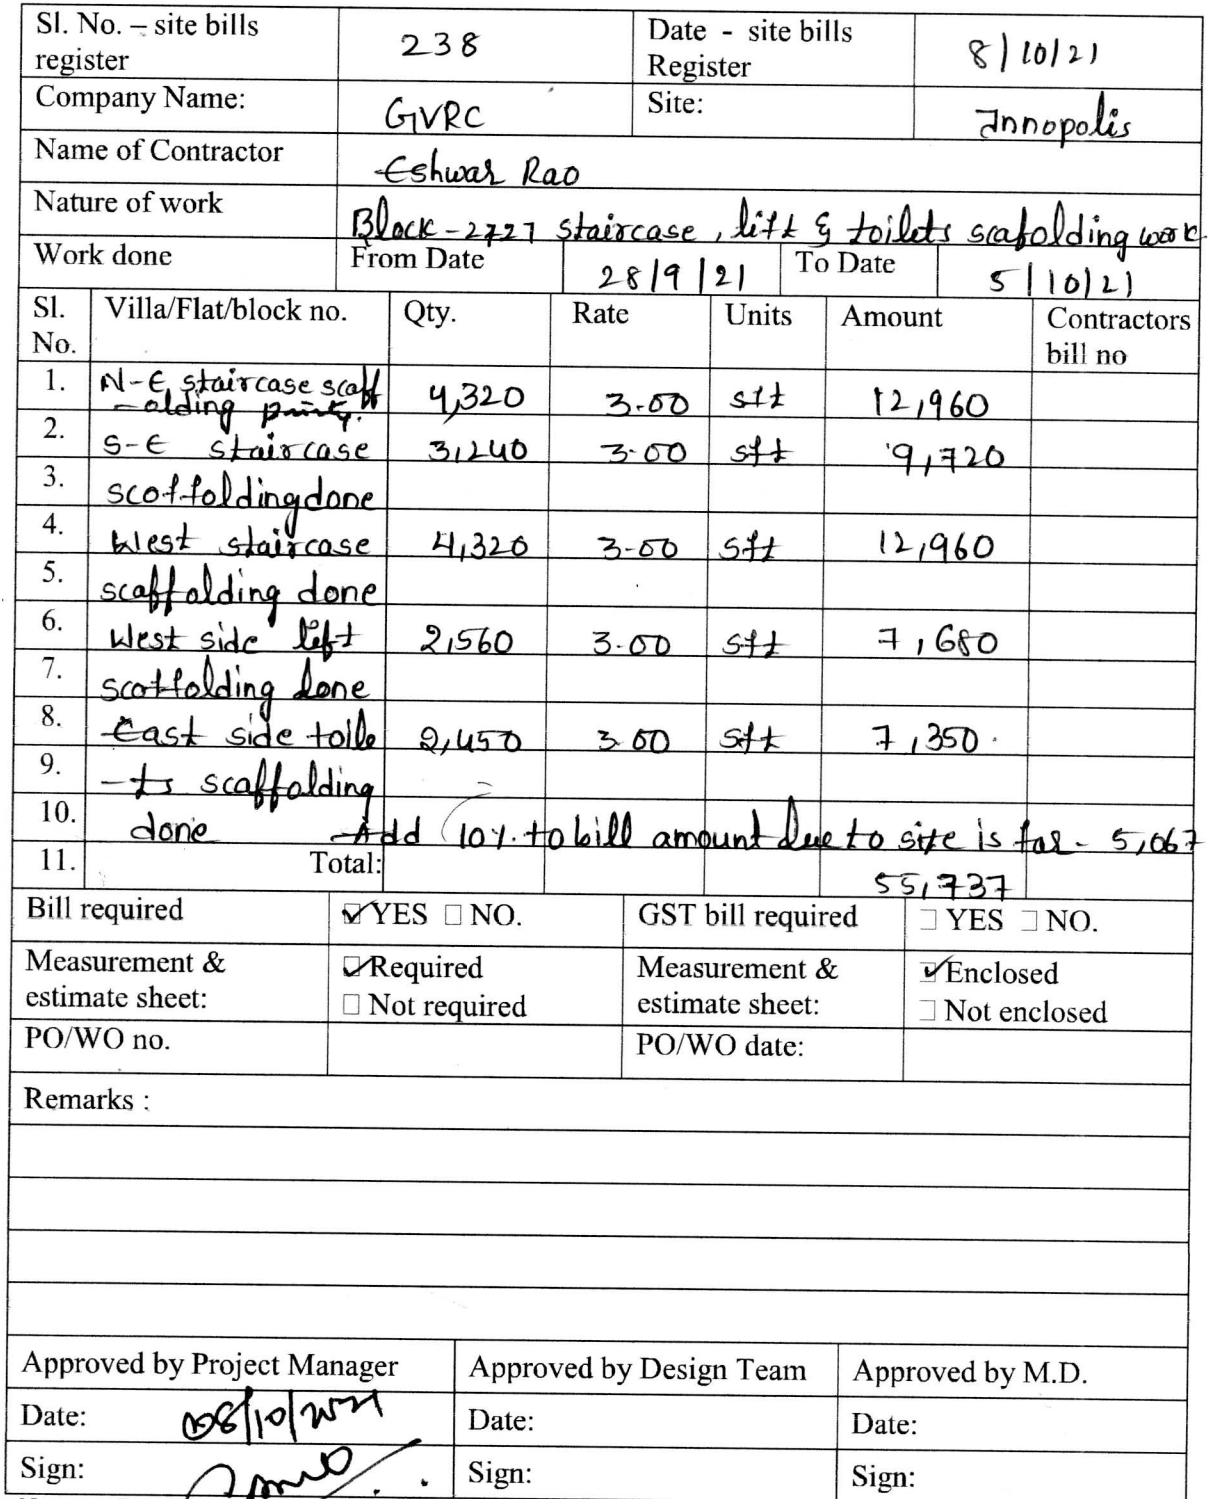 Sl. No. – site bills register 238 Date - site bills Register 8/10/21
Company Name: GVRC Site: Innopolis
Name of Contractor Eshwar Rao
Nature of work Block-2727 staircase, lift & toilets scafolding work
Work done From Date 28/9/21 To Date 5/10/21
Sl. No. Villa/Flat/block no. Qty. Rate Units Amount Contractors bill no
1. N-E staircase scaff 4,320 3.00 sft 12,960
-olding
2. S-E staircase 3,240 3.00 sft 9,720
3. scoffolding done
4. West staircase 4,320 3.00 sft 12,960
5. scaffolding done
6. West side left 2,560 3.00 sft 7,680
7. scoffolding done
8. East side toile 2,450 3.00 sft 7,350
9. -ts scaffolding
10. done Add 10% to bill amount due to site is far - 5,067
11. Total: 55,737
Bill required ☑ YES ☐ NO. GST bill required ☐ YES ☐ NO.
Measurement & estimate sheet: ☑ Required ☐ Not required Measurement & estimate sheet: ☑ Enclosed ☐ Not enclosed
PO/WO no. PO/WO date:
Remarks :
Approved by Project Manager Approved by Design Team Approved by M.D.
Date: 08/10/2021 Date: Date:
Sign: Sign: Sign: